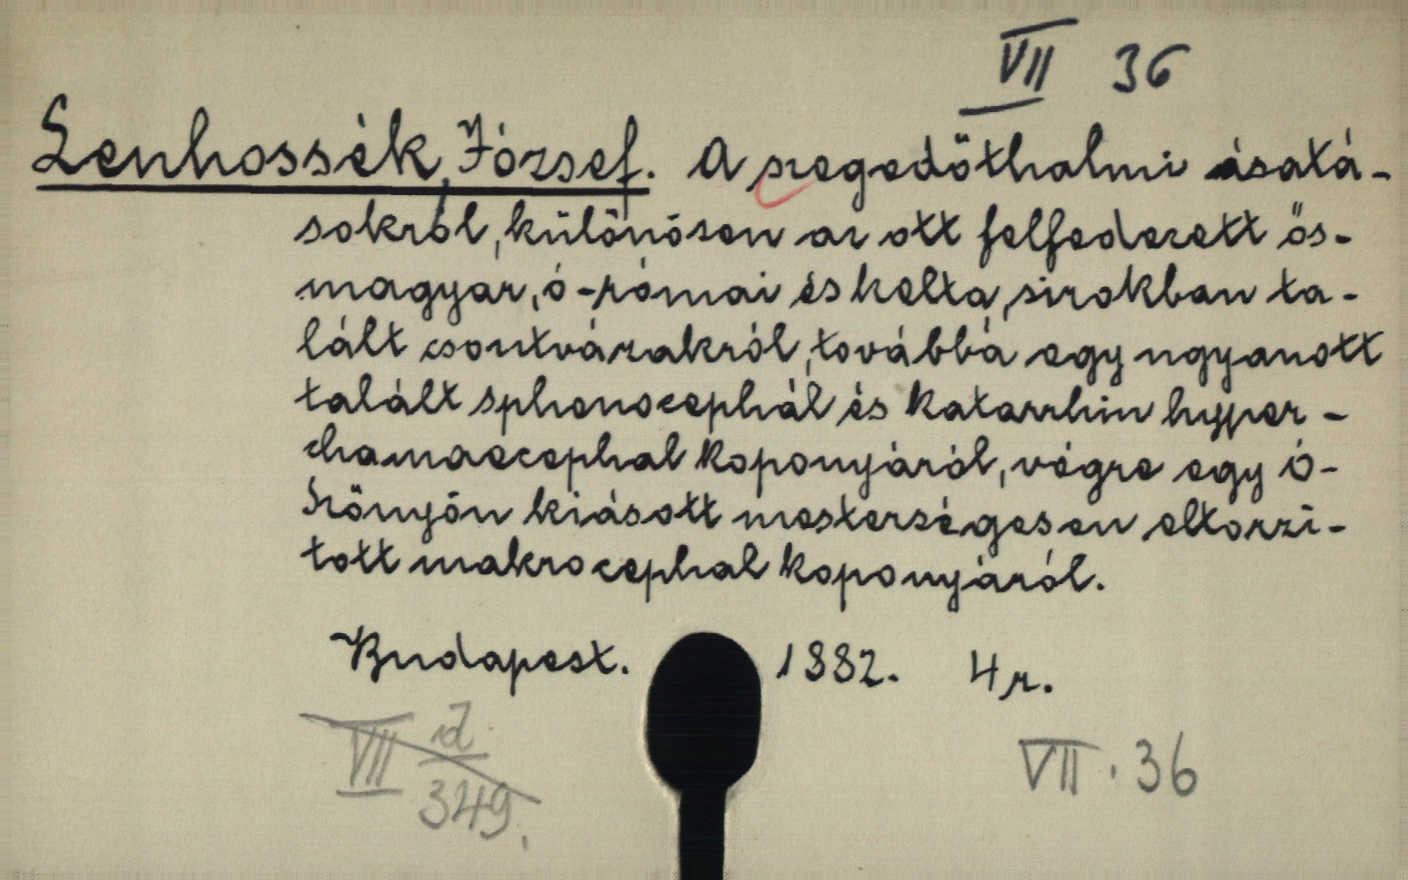 VII 36
Lenhossék, József. A szegedőthalmi ásatá-
sokról, különösen az ott felfedezett ős-
magyar, ó-római és kelta sirokban ta-
lált csontvázakról, továbbá egy ugyanott
talált sphenocephál és katarrhin hyper-
chamaecephal koponyáról, végre egy Ó-
Szőnyön kiásott mesterségesen eltorzí-
tott makrocephal koponyáról.
Budapest. 1882. 4r.
VII d/349.
VII. 36